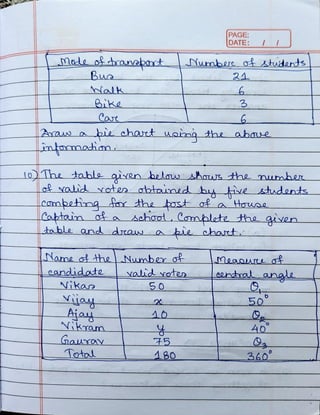 PAGE:
DATE: / /
Mode of transport Number of students
Bus 21
Walk 6
Bike 3
Car 6
Draw a pie chart using the above
information.
10) The table given below shows the number
of valid votes obtained by five students
competing for the post of a House
Captain of a school. Complete the given
table and draw a pie chart.
Name of the Number of Measure of
candidate valid votes central angle
Vikas 50 θ₁
Vijay x 50°
Ajay 10 θ₂
Vikram y 40°
Gaurav 75 θ₃
Total 180 360°